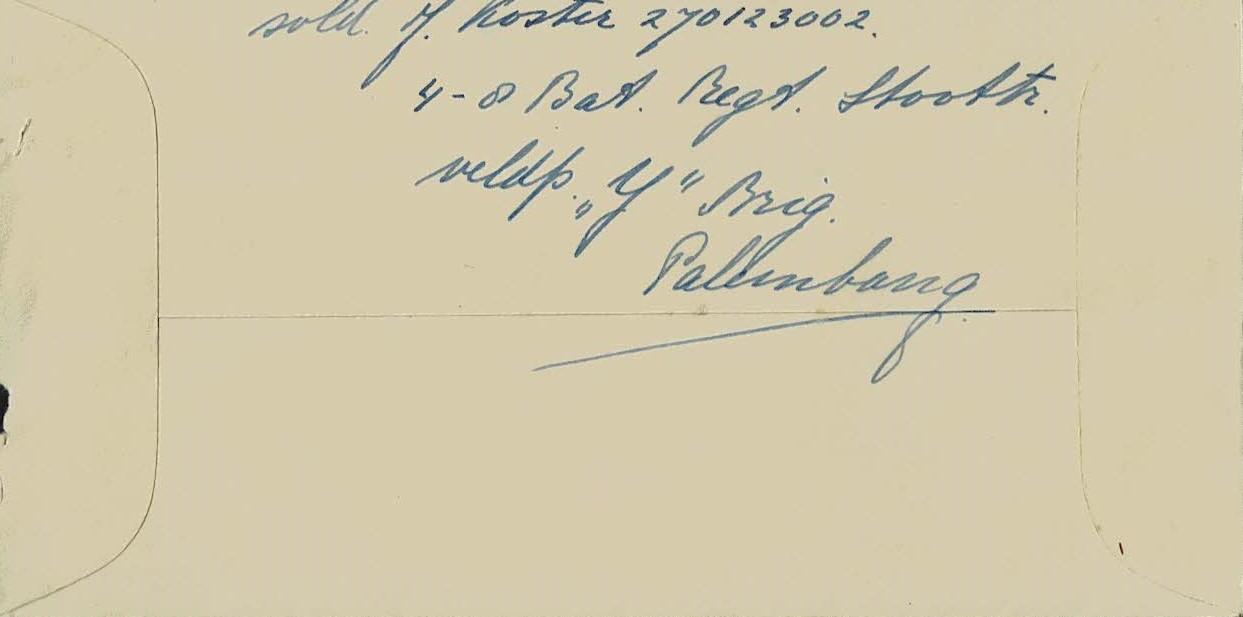 sold. H. Koster 270123002.
4-8 Bat. Regt. Stoottr.
veldp. „Y" Brig.
Palembang